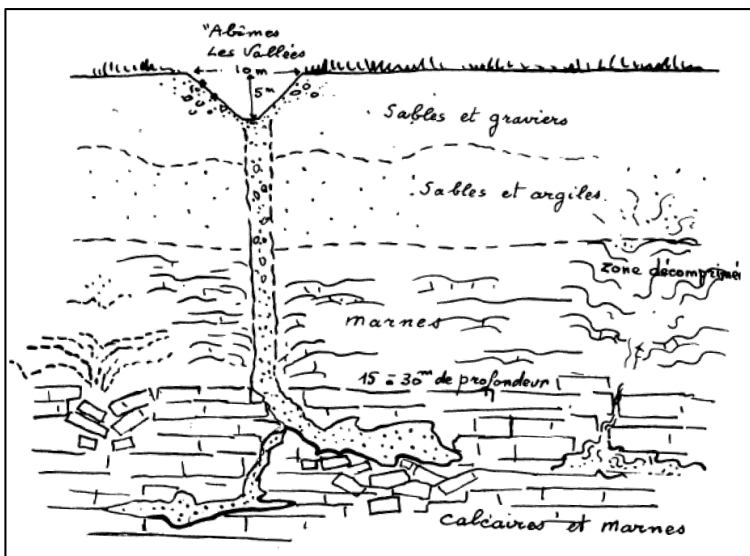 "Abîmes
Les Vallées
10 m
5m
Sables et graviers
Sables et argiles
zone décomprimée
marnes
15 à 30m de profondeur
Calcaires et marnes